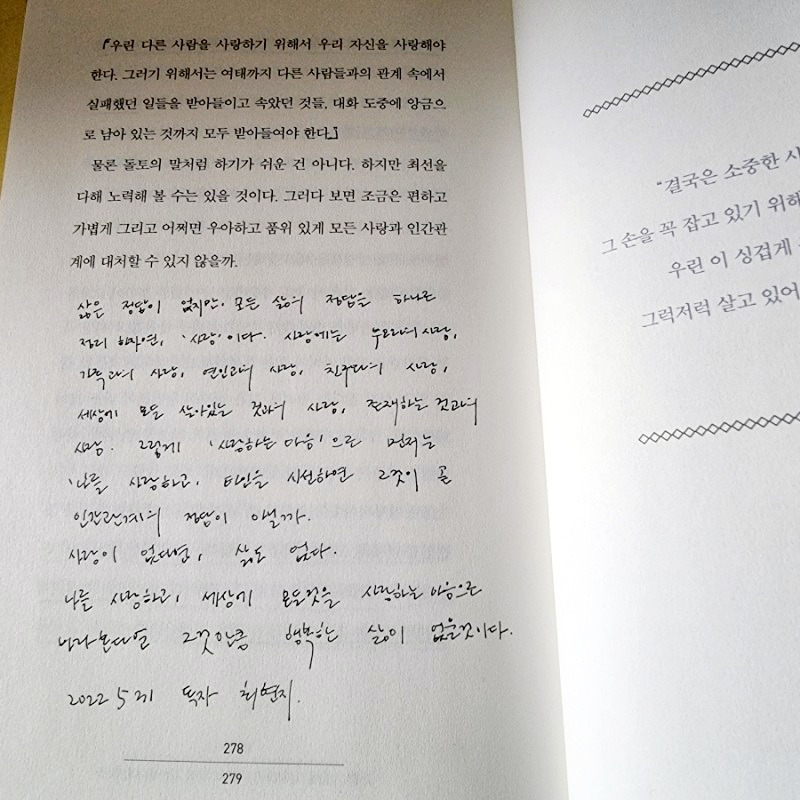 『우린 다른 사람을 사랑하기 위해서 우리 자신을 사랑해야
한다. 그러기 위해서는 여태까지 다른 사람들과의 관계 속에서
실패했던 일들을 받아들이고 속았던 것들, 대화 도중에 앙금으
로 남아 있는 것까지 모두 받아들여야 한다.』
물론 돌토의 말처럼 하기가 쉬운 건 아니다. 하지만 최선을
다해 노력해 볼 수는 있을 것이다. 그러다 보면 조금은 편하고
가볍게 그리고 어쩌면 우아하고 품위 있게 모든 사랑과 인간관
계에 대처할 수 있지 않을까.
삶은 정답이 없지만, 모든 삶의 정답을 하나로
정리 하자면, '사랑'이다. 사랑에는 부모와의 사랑,
가족과의 사랑, 연인과의 사랑, 친구와의 사랑,
세상에 모든 살아있는 것과의 사랑, 존재하는 것과의
사랑. 그렇게 '사랑하는 마음'으로 먼저는
'나를 사랑하고, 타인을 시선하면 그것이 곧
인간관계의 정답이 아닐까.
사랑이 없다면, 삶도 없다.
나를 사랑하고, 세상에 모든것을 사랑하는 마음으로
바라본다면 그것만큼 행복한 삶이 없을것이다.
2022 5 21 독자 최현지.
278
279
"결국은 소중한 사
그 손을 꼭 잡고 있기 위해
우린 이 싱겁게
그럭저럭 살고 있어